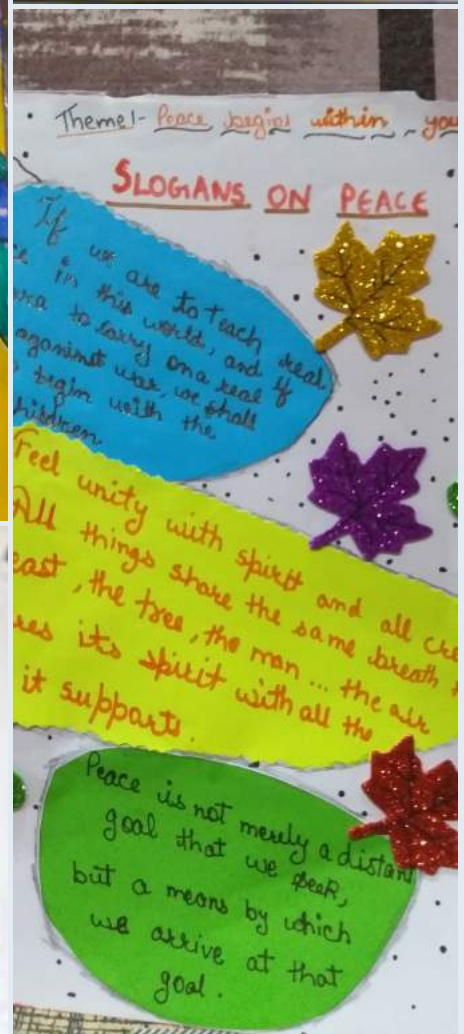 Theme!- Peace begins within, you
SLOGANS ON PEACE
If we are to teach real
in this world, and if
to carry on a real
against war, we shall
begin with the
children.
Feel unity with spirit and all cre
All things share the same breath
east, the tree, the man... the air
res its spirit with all the
it supports.
Peace is not merely a distant
goal that we seek,
but a means by which
we arrive at that
goal.